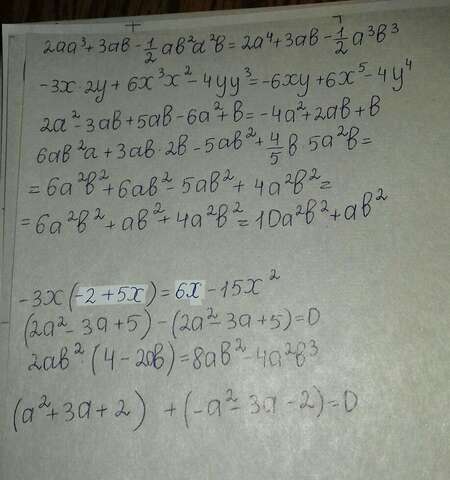 2aa³+3ab-1/2ab²a²b=2a⁴+3ab-1/2a³b³
-3x·2y+6x³x²-4yy³=-6xy+6x⁵-4y⁴
2a²-3ab+5ab-6a²+b=-4a²+2ab+b
6ab²a+3ab·2b-5ab²+4/5b·5a²b=
=6a²b²+6ab²-5ab²+4a²b²=
=6a²b²+ab²+4a²b²=10a²b²+ab²
-3x(-2+5x)=6x-15x²
(2a²-3a+5)-(2a²-3a+5)=0
2ab²·(4-2ab)=8ab²-4a²b³
(a²+3a+2) +(-a²-3a-2)=0